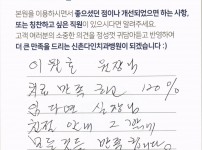 본원을 이용하시면서 좋으셨던 점이나 개선되었으면 하는 사항,
또는 칭찬하고 싶은 직원이 있으시다면 알려주세요.
고객 여러분의 소중한 의견을 정성껏 귀담아듣고 반영하여
더 큰 만족을 드리는 신촌다인치과병원이 되겠습니다 :)
원장님
치료 만족 최고 120%
실장님
친절 안내 그 자체
만족합니다.